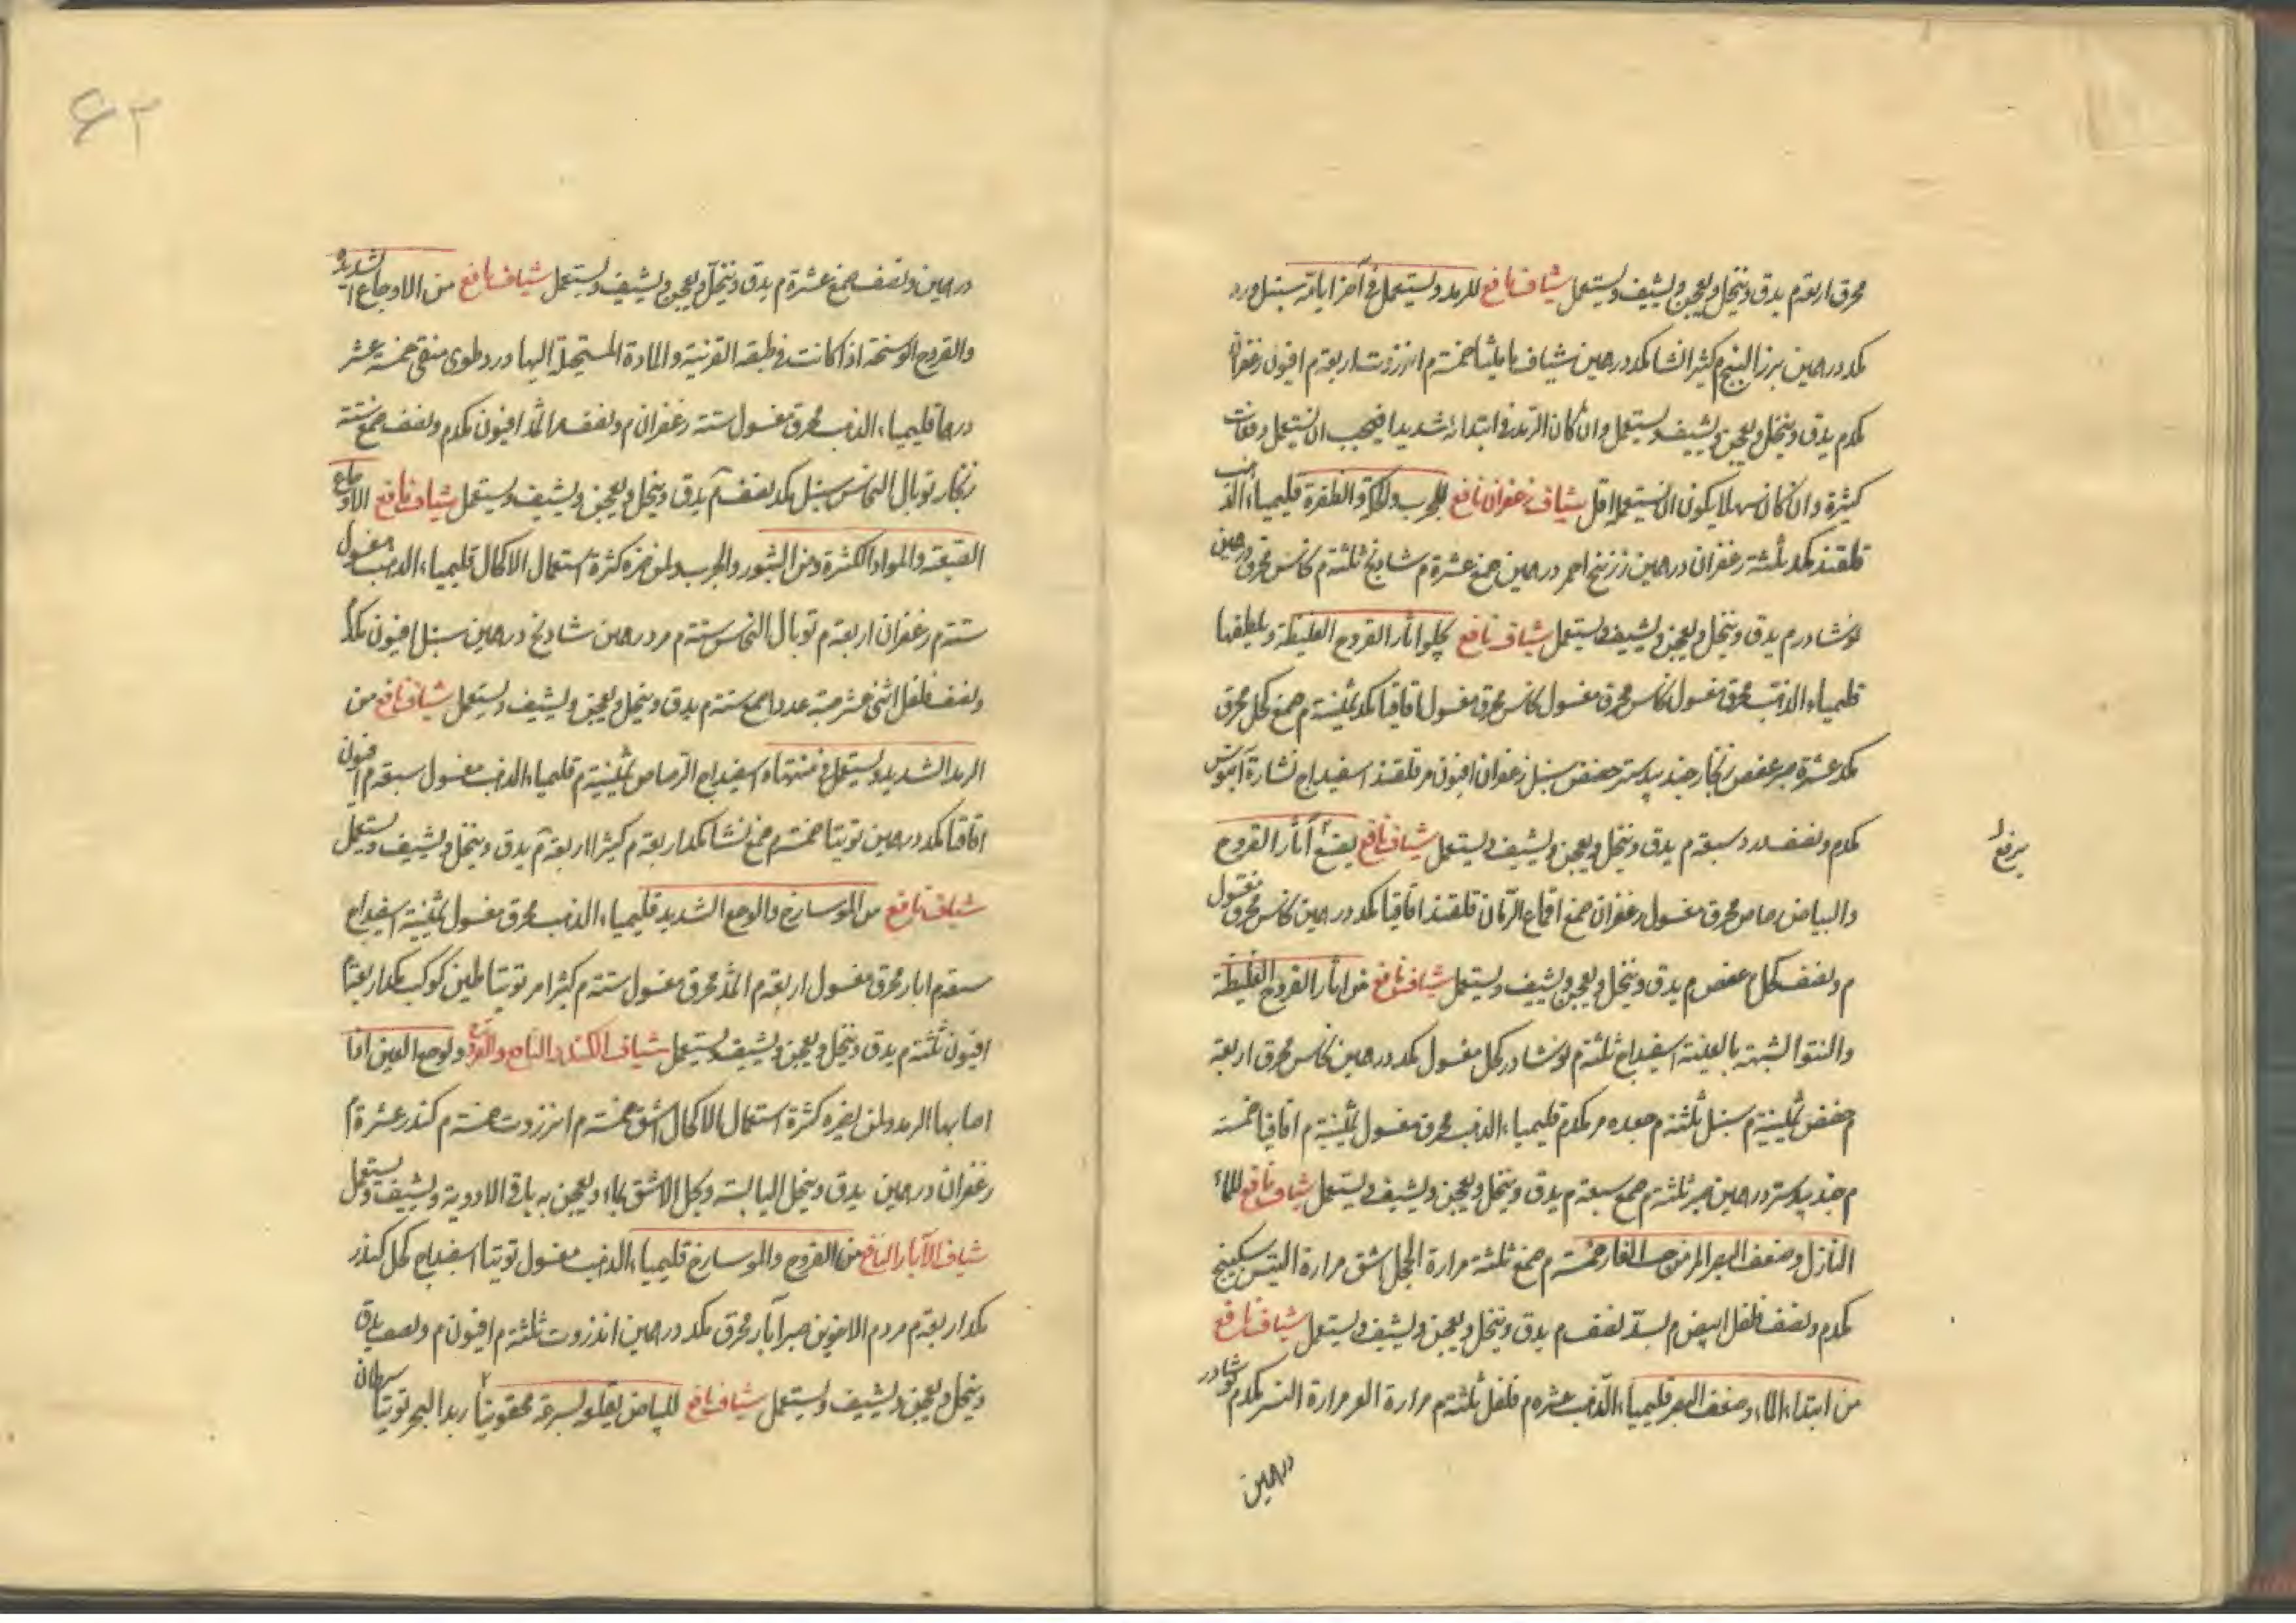 محرق اربعة م يدق وينخل ويعجن ويشيف ويستعمل شياف نافع للرمد ويستعمل في آخر ايامه سنبل ورد
مكد درهمين بزر البنج م كثيرا نشا مكد درهمين شياف ماميثا خمسة م انزروت اربعة م افيون زعفران
مكدم يدق وينخل ويعجن ويشيف ويستعمل وان كان الرمد في ابتدائه شديدا فيجب ان يستعمل دفعات
كثيرة وان كان سهلا يكون ان يستعمله اقل شياف زعفران نافع للجرب والحكة والظفرة قليمياء الذهب
قلقند مكد ثلثة زعفران درهمين زرنيخ احمر درهمين صمغ عشرة م شادنج ثلثة م نحاس محرق درهمين
نوشادر م يدق وينخل ويعجن ويشيف ويستعمل شياف نافع يجلو اثار القروح الغليظة ويلطفها
قليمياء الذهب محرق مغسول نحاس محرق مغسول اقاقيا مكد ثمنية م صمغ كحل محرق
مكد عشرة صبر عفص زنجار جندبيدستر حضض سنبل زعفران افيون مر قلقند اسفيداج نشارة آبنوس
مكدم ونصف ورد سبعة م يدق وينخل ويعجن ويشيف ويستعمل شياف نافع آثار القروح
يرفع
والبياض رصاص محرق مغسول زعفران صمغ اقماع الرمان قلقند اقاقيا مكد درهمين نحاس محرق مغسول
م ونصف كحل عفص م يدق وينخل ويعجن ويشيف ويستعمل شياف نافع من اثار القروح الغليظة
والنتو الشبيه بالعنبة اسفيداج ثلثة م نوشادر كحل مغسول مكد درهمين نحاس محرق اربعة
م حضض ثمنية م سنبل ثلثة م مر مكدم قليمياء الذهب محرق مغسول ثمنية م اقاقيا خمسة
م جندبيدستر درهمين صبر ثلثة م صمغ سبعة م يدق وينخل ويعجن ويشيف ويستعمل شياف نافع للماء
النازل وضعف البصر المزمن حب الغار خمسة م صمغ ثلثة مرارة الحجل اشق مرارة التيس سكبينج
مكدم ونصف فلفل ابيض م بسد نصف م يدق وينخل ويعجن ويشيف ويستعمل شياف نافع
من ابتداء الماء وضعف البصر قليمياء الذهب عشرة م فلفل ثلثة م مرارة مرارة النسر مكدم نوشادر
درهمين
٦٢
درهمين ونصف صمغ عشرة م يدق وينخل ويعجن ويشيف ويستعمل شياف نافع من الاوجاع الشديدة
والقروح الوسخة اذا كانت في طبقة القرنية والمادة المتحيلة اليها ورد طرى منقى خمسة عشر
درهما قليمياء الذهب محرق مغسول ستة زعفران م ونصف اثمد افيون مكدم ونصف صمغ ستة
زنجار توبال النحاس سنبل مكد نصف م يدق وينخل ويعجن ويشيف ويستعمل شياف نافع الاوجاع
العتيقة والمواد الكثيرة ومن البثور والجرب ولمن ضره كثرة استعمال الاكحال قليمياء الذهب مغسول
ستة م زعفران اربعة م توبال النحاس ستة م مر درهمين شادنج درهمين سنبل افيون مكدم
ونصف فلفل اثنى عشر حبة عددا صمغ ستة م يدق وينخل ويعجن ويشيف ويستعمل شياف نافع من
الرمد الشديد ويستعمل في منتهاه اسفيداج الرصاص ثمنية م قليمياء الذهب مغسول سبعة م افيون
اقاقيا مكد درهمين توتيا خمسة م صمغ نشا مكد اربعة م كثيرا اربعة م يدق وينخل ويشيف ويستعمل
شياف نافع من الموسارج والوجع الشديد قليمياء الذهب محرق مغسول ثمنية اسفيداج
سبعة م ابار محرق مغسول اربعة م اثمد محرق مغسول ستة م كثيرا مر توتيا طين كوكب مكد اربعة م
افيون ثلثة م يدق وينخل ويعجن ويشيف ويستعمل شياف الكندر النافع ولوجع العين اذا
اصابها الرمد ولمن يضره كثرة استعمال الاكحال اشق خمسة م انزروت خمسة م كندر عشرة م
زعفران درهمين يدق وينخل اليابسة ويحل الاشق بماء ويعجن به باقى الادوية ويشيف ويستعمل
شياف الآبار النافع من القروح والموسارج قليمياء الذهب مغسول توتيا اسفيداج كحل كندر
مكد اربعة م مر دم الاخوين صبر آبار محرق مكد درهمين انزروت ثلثة م افيون م ونصف يدق
وينخل ويعجن ويشيف ويستعمل شياف نافع للبياض يقلعه بسرعة زبد البحر توتيا سرطان